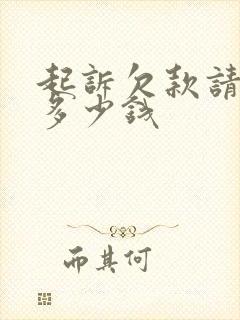 起訴欠款請
多少錢
而其何